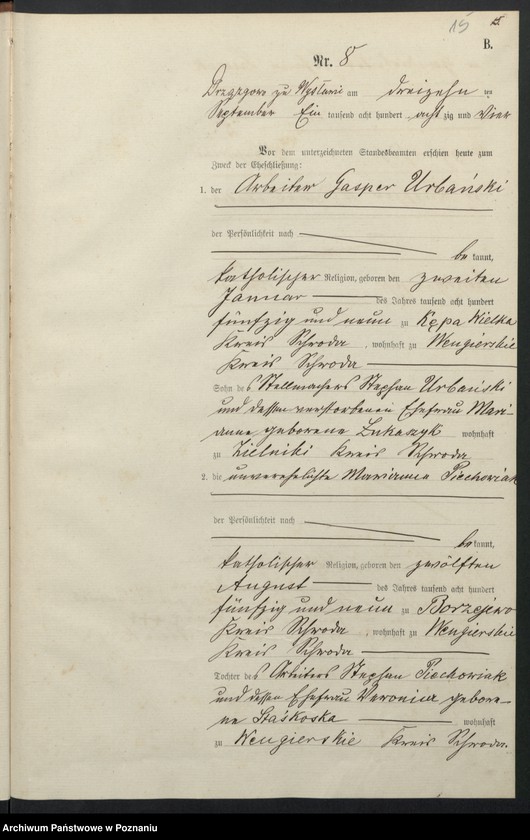 15
B.
Nr. 8
zu am dreizehn ten
September Ein tausend acht hundert acht zig und vier
Vor dem unterzeichneten Standesbeamten erschien heute zum
Zweck der Eheschließung:
1. der Arbeiter Gasper Urbański
der Persönlichkeit nach
be kannt,
katholischer Religion, geboren den zweiten
Januar des Jahres tausend acht hundert
fünfzig und neun zu Kępa Wielka
Kreis Schroda, wohnhaft zu Wengierskie
Kreis Schroda
Sohn des Stellmachers Stephan Urbański
und dessen verstorbenen Ehefrau Mari-
anne geborene Lukaszyk wohnhaft
zu Zielniki Kreis Schroda
2. die unverehelichte Marianna Piechowiak
der Persönlichkeit nach
be kannt,
katholischer Religion, geboren den zwölften
August des Jahres tausend acht hundert
fünfzig und neun zu Borzejewo
Kreis Schroda, wohnhaft zu Wengierskie
Kreis Schroda
Tochter des Arbeiters Stephan Piechowiak
und dessen Ehefrau Veronica gebore-
ne Staśkoska wohnhaft
zu Wengierskie Kreis Schroda.
Archiwum Państwowe w Poznaniu